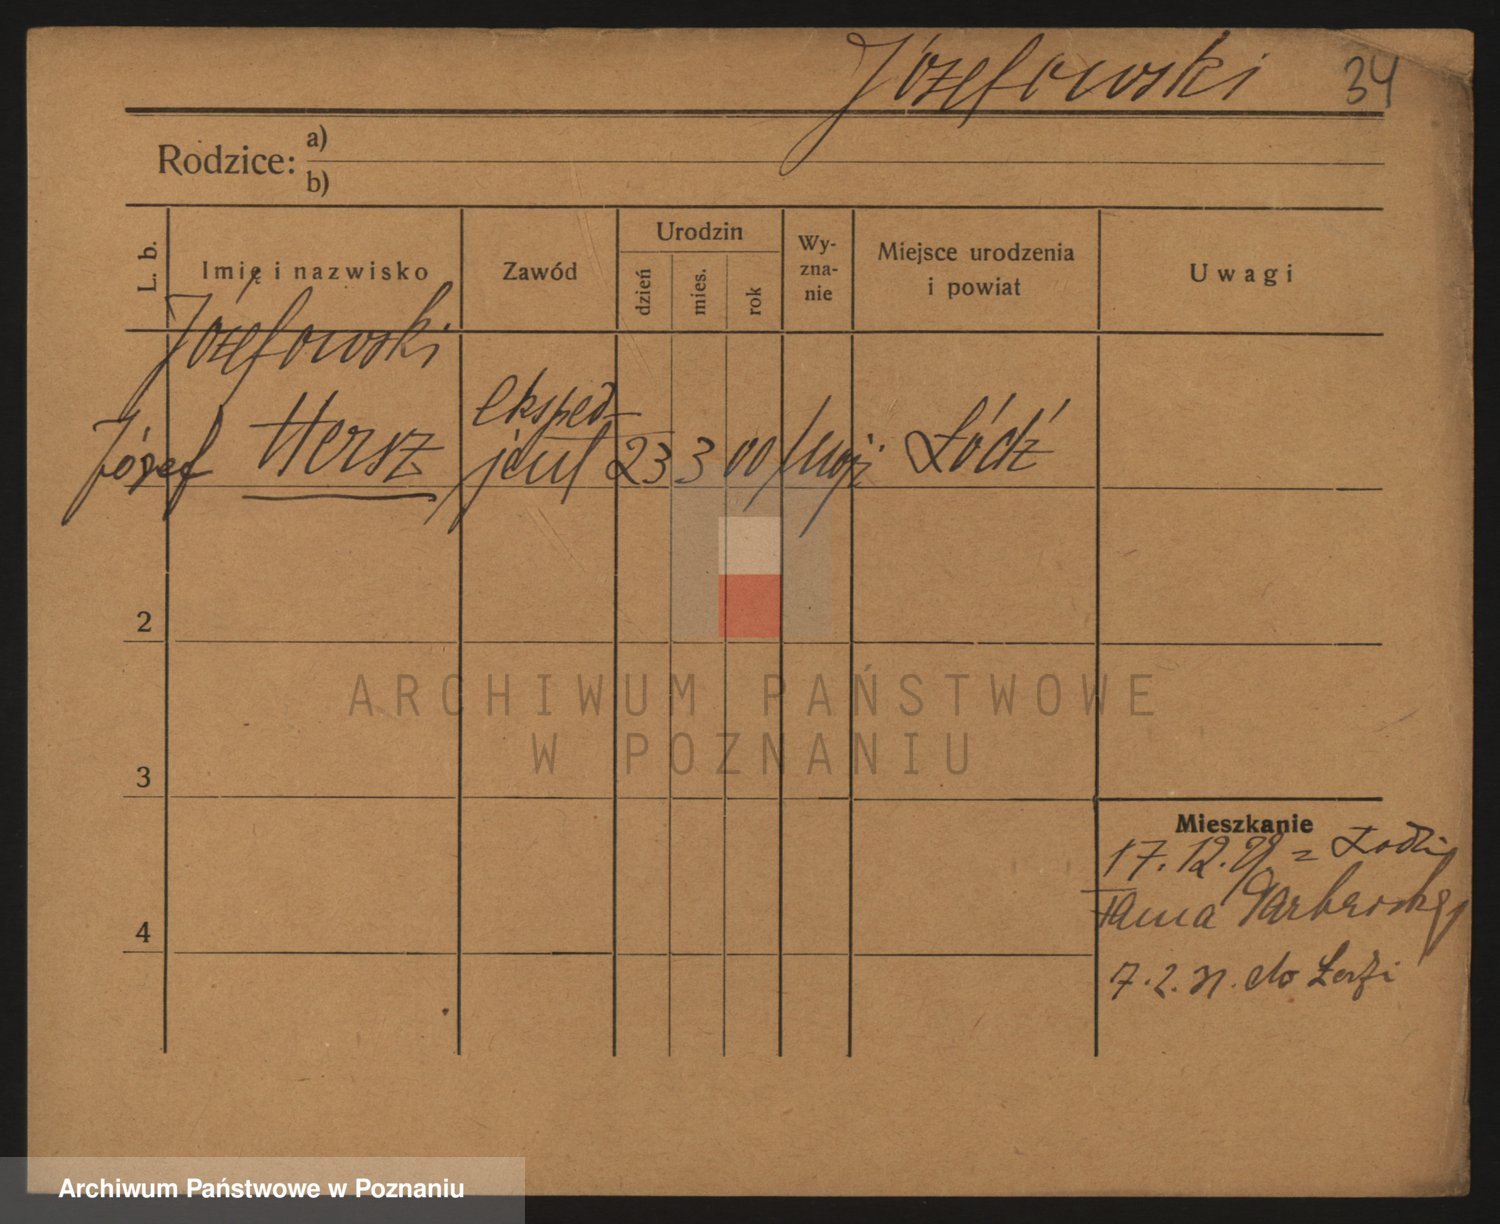 Józefowski 34
Rodzice: a)
b)
L. b.
Imię i nazwisko
Zawód
Urodzin
dzień
mies.
rok
Wy-
zna-
nie
Miejsce urodzenia
i powiat
Uwagi
Józefowski
Józef Hersz
eksped-
jent
23 3 00 mojż Łódź
2
3
4
Mieszkanie
17.12.29 = z Łodzi
7.2.31. do Łodzi
ARCHIWUM PAŃSTWOWE
W POZNANIU
Archiwum Państwowe w Poznaniu